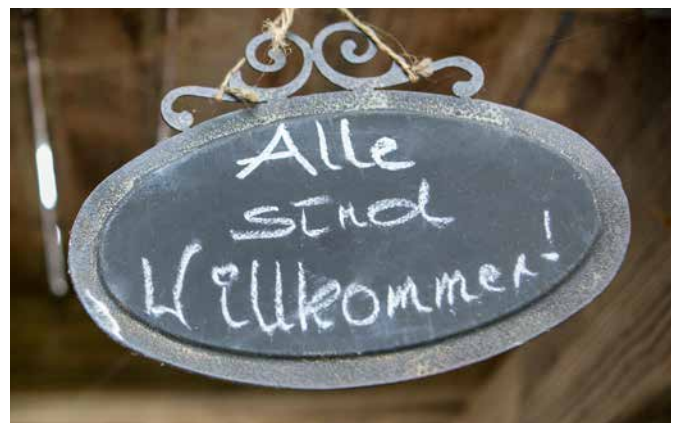 Alle
sind
Willkommen!